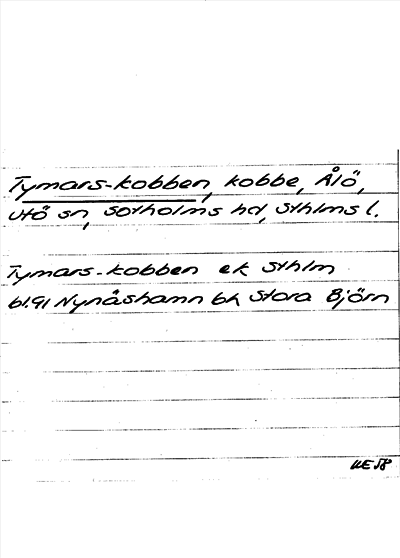 Tymars-kobben, kobbe, Ålö,
Utö sn, Sotholms hd, Sthlms l.
Tymars-kobben ek Sthlm
bl.91 Nynäshamn bk Stora Björn
KE 58